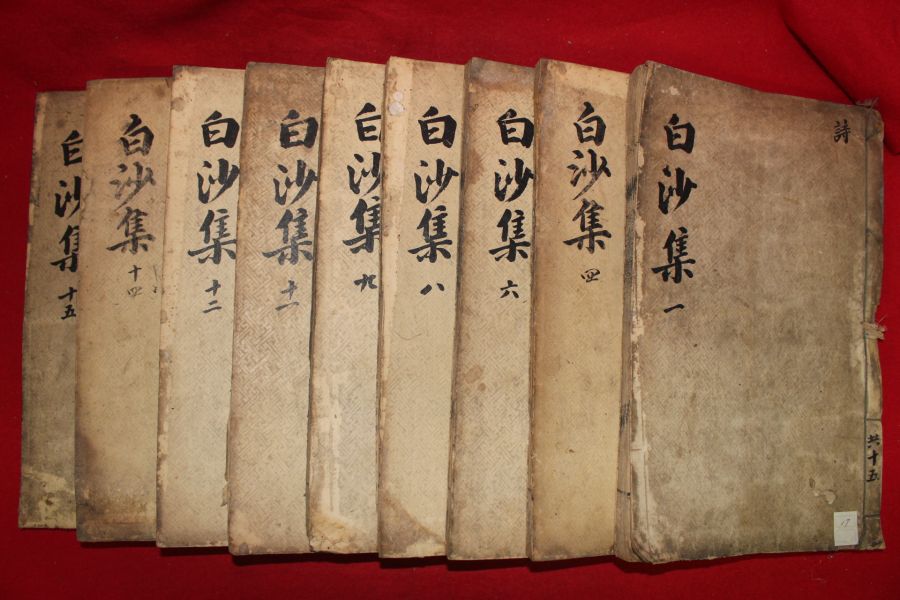 白沙集 一
詩
共十五
17
白沙集 四
白沙集 六
白沙集 八
白沙集 九
白沙集 十一
白沙集 十二
白沙集 十四
白沙集 十五